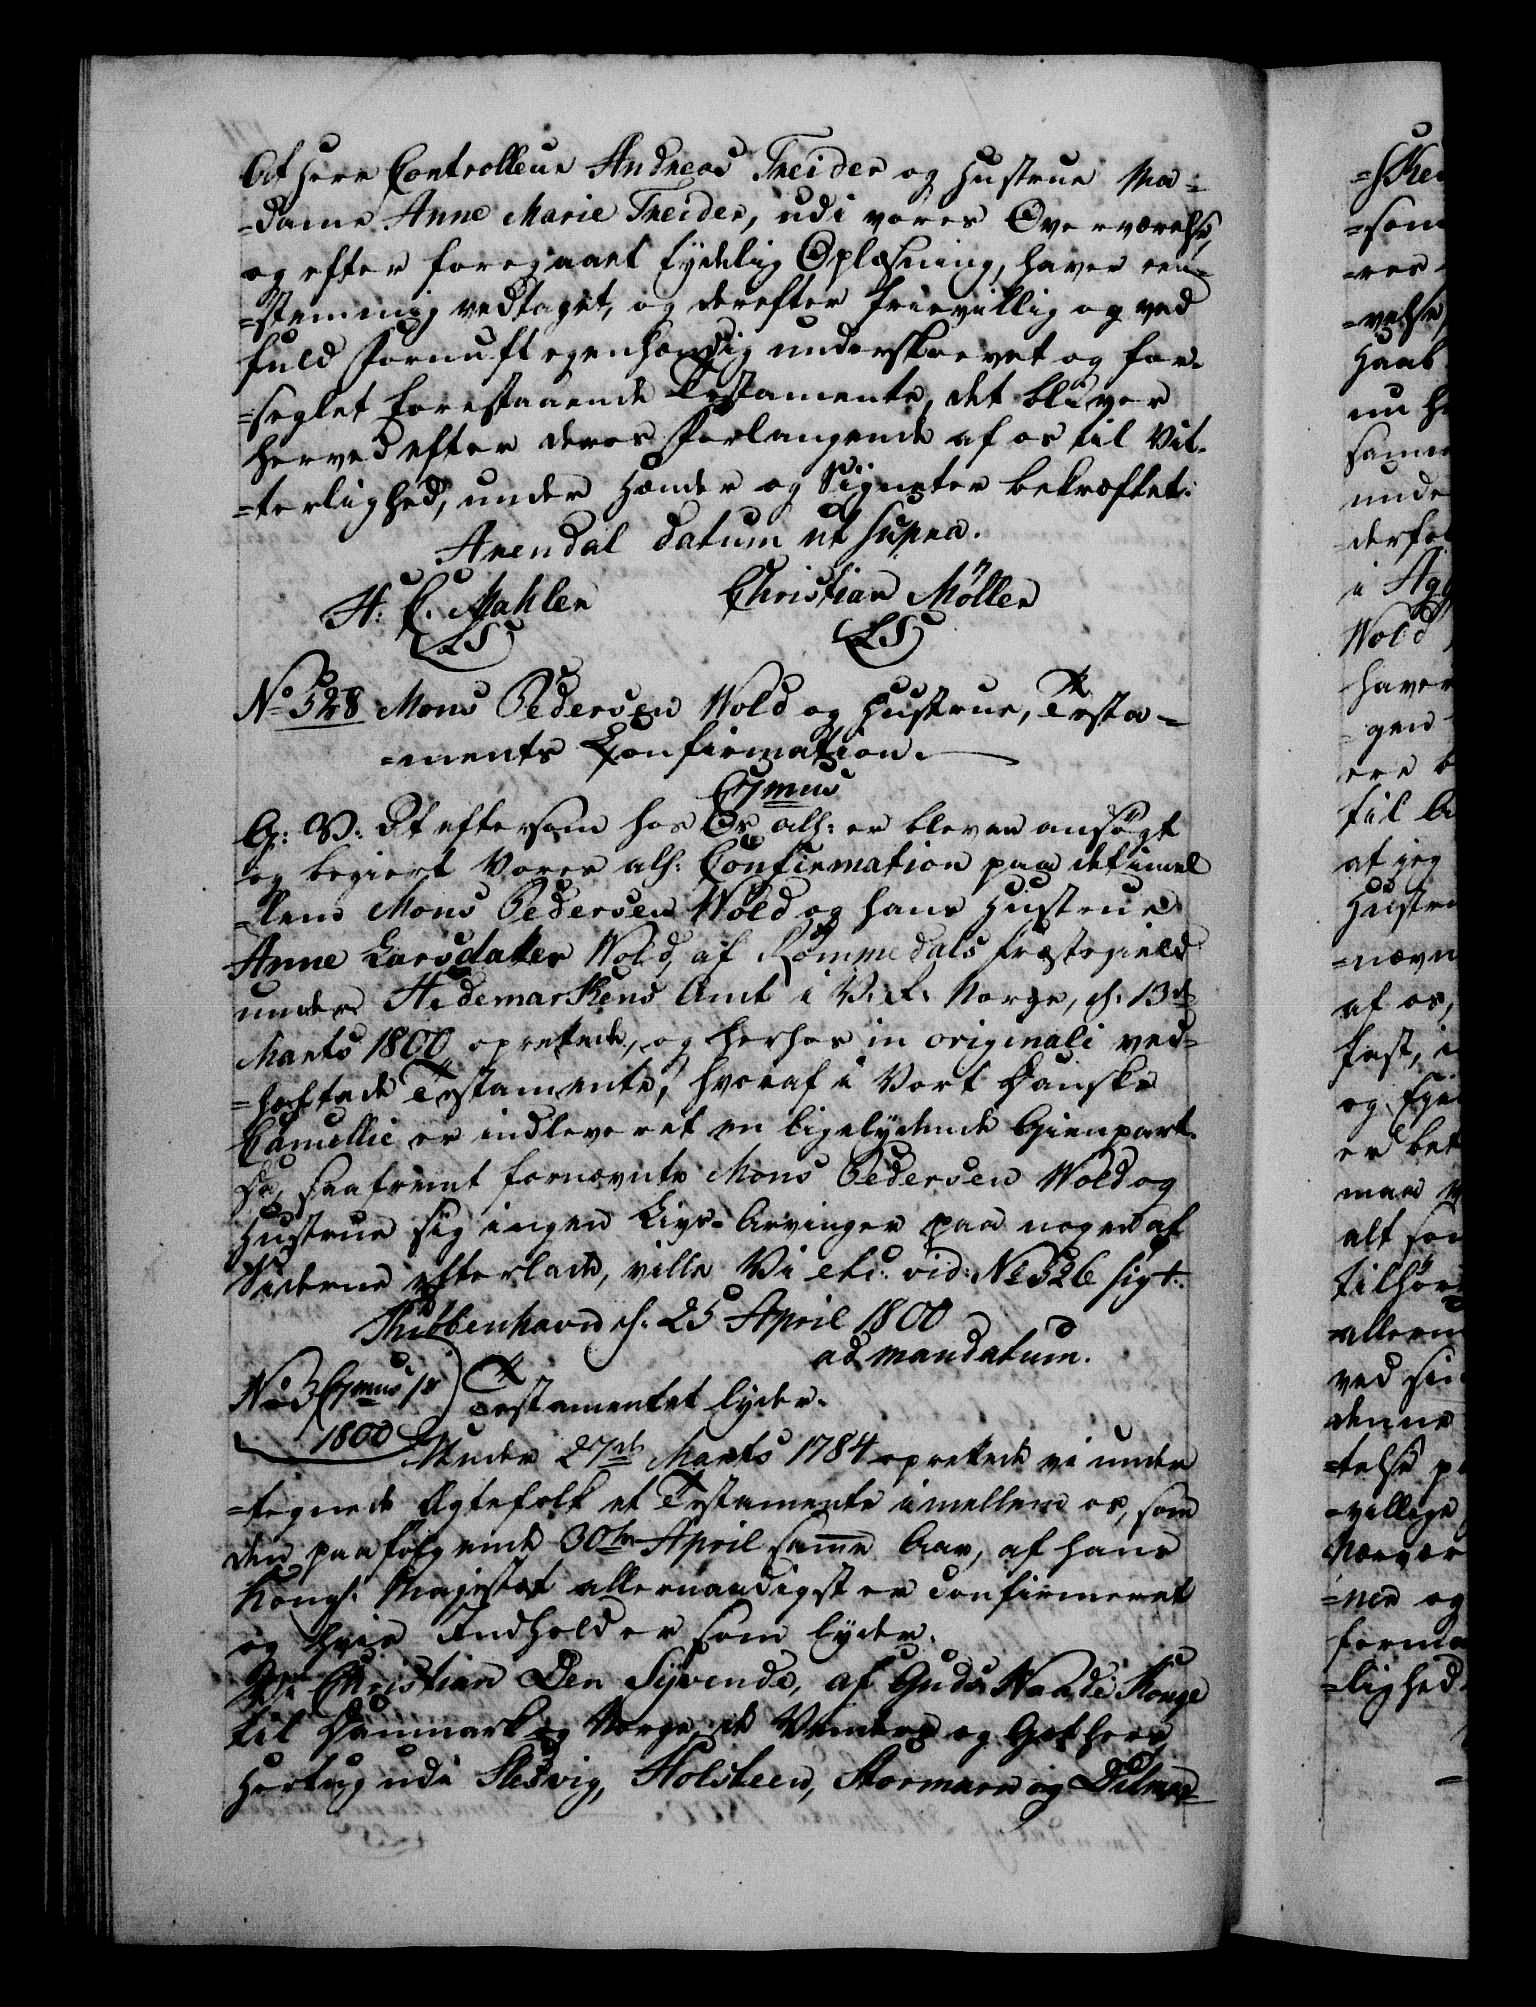 At Herr Controlleur Andreas Treider og Hustrue Ma=
=dame Anne Marie Treider, udi vores Overværelse,
og efter foregaaet tydelig Oplæsning, haver een=
=stemmig vedtaget, og derefter frievillig og ved
fuld Fornuft egenhændig underskrevet og for=
=seglet forestaaende Testamente, det bliver
herved efter deres Forlangende af os til Vit=
=terlighed, under Hænder og Signeter bekræftet.
Arendal datum ut supra.
H. C. Mahler Christian Möller
(LS) (LS)
No 328 Mons Pedersen Wold og Hustrue, Testa=
=ments Confirmation.
G: V: At eftersom hos Os alh: er bleven ansøgt
og begiert Vores alh: Confirmation paa det imel=
=lem Mons Pedersen Wold og hans Hustrue
Anne Larsdatter Wold, af Rommedals Præstegield
under Hedemarkens Amt i V. R. Norge, d: 13de
Marts 1800 oprettede, og herhos in originali ved=
=hæftede Testamente, hvoraf i Vort Danske
Cancellie er indleveret en ligelydende Gienpart.
Da, saafremt fornævnte Mons Pedersen Wold og
Hustrue sig ingen Livs-Arvinger paa nogen af
Siderne efterlade, ville Vi etc: vid: No 326 sigt.
Kiøbbenhavn d. 25 April 1800
ad mandatum.
Testamentet lyder.
1800
Under 27de Marts 1784 oprettede vi under
=tegnede Ægtefolk et Testamente imellem os, som
den paafølgende 30te April samme Aar, af Hans
Kongl: Majestæt allernaadigst er confirmeret
og hvis Indhold er som lyder.
Vi Christian Den Syvende, af Guds Naade Konge
til Danmark og Norge, de Venders og Gothers,
Hertug udi Slesvig, Holsteen, Stormarn og Ditmar=